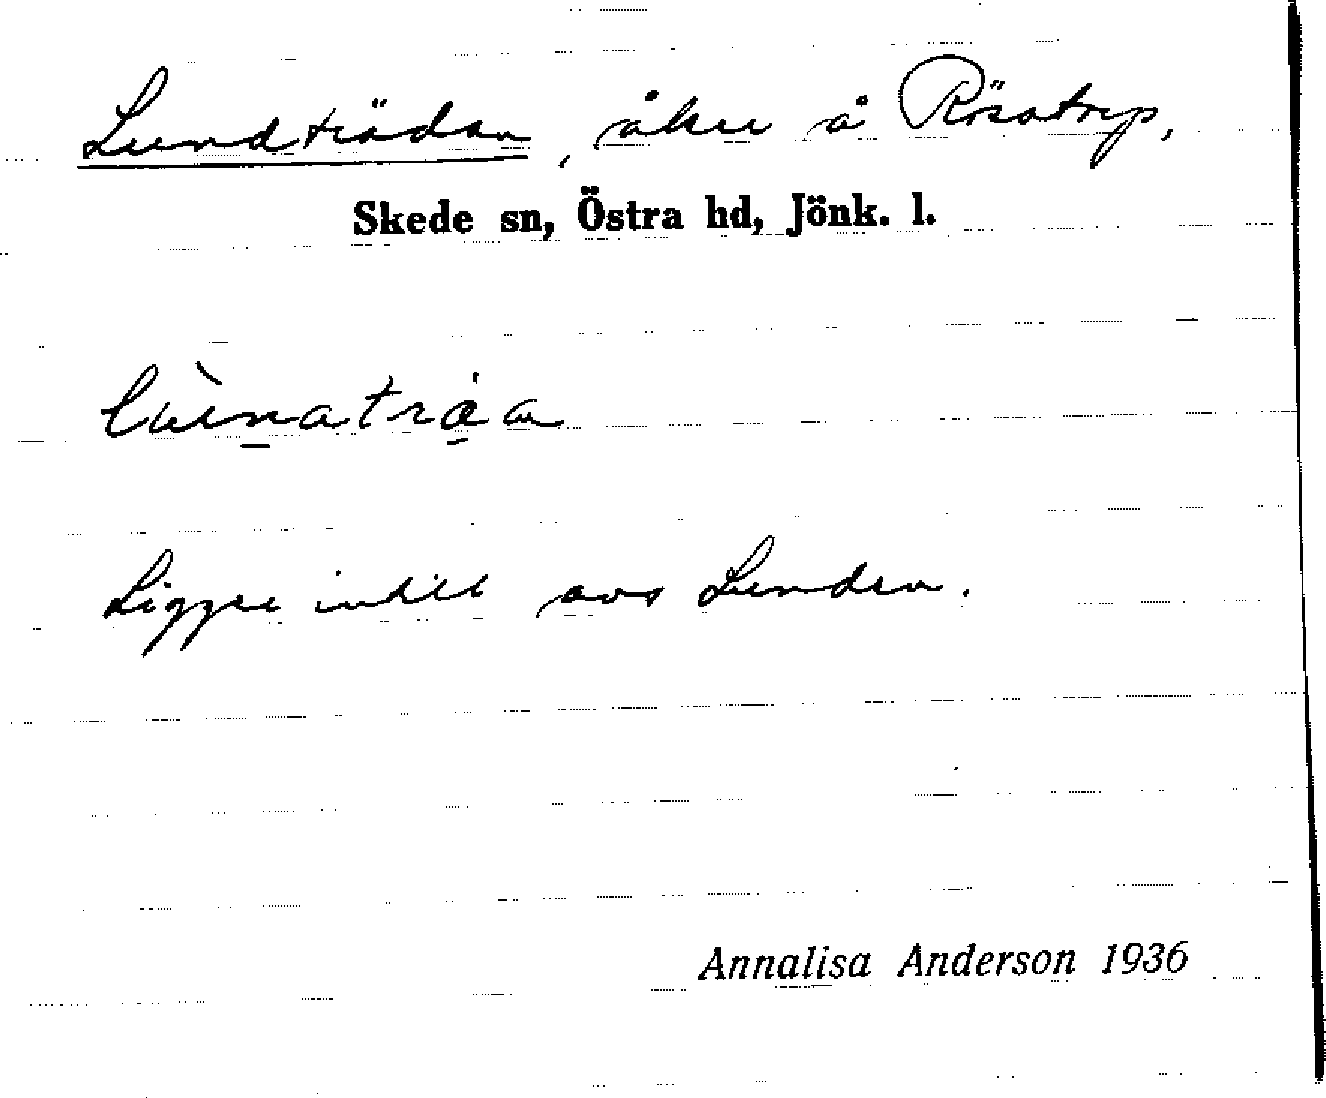 Lundträdan, åker å Rösatorp,
Skede sn, Östra hd, Jönk. l.
Ligger intill Lunden.
Annalisa Anderson 1936